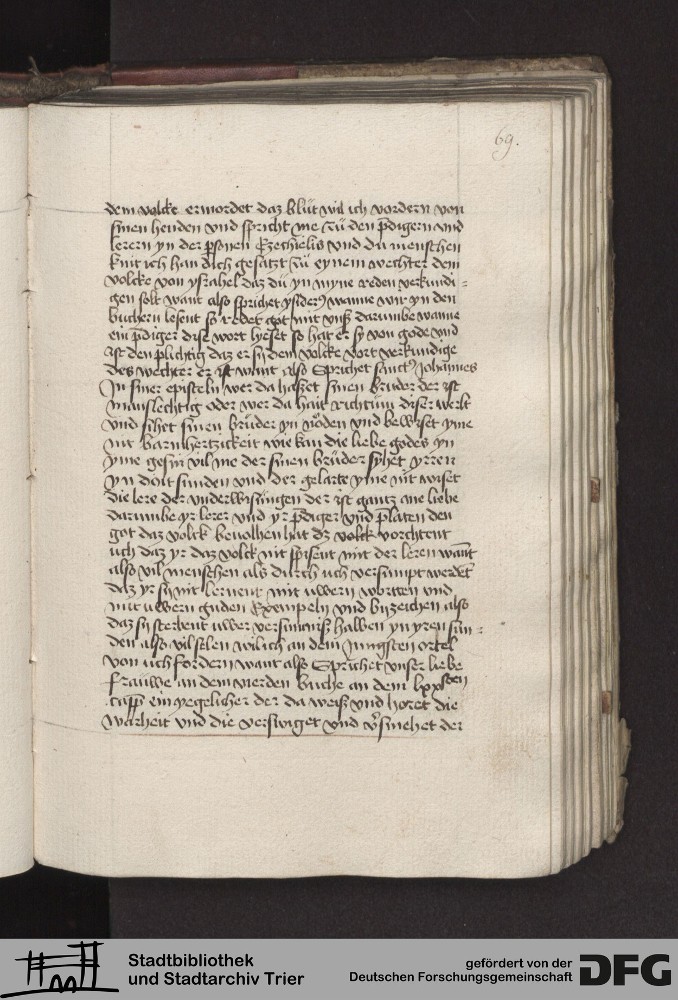 69.
dem volcke ermordet daz blut wil ich vordern von
sinen henden vnd spricht me zü den p̄digern vnd
lerern yn der psonen Ezechielis vnd du menschen
knit ich han dich gesatzt zü eynem wechter dem
volcke von ysrahel daz dü yn myne reden verkundi-
gen solt want also sprichet wanne wir yn den
buchern lesent so redet got mit vnß darumbe wanne
ein p̄diger dise wort heset so hat er sy von gode vnd
ist den plichtig daz er sy dem volcke vort verkundige
des wechter er ist want also Sprichet sanct9 Johannes
In siner episteln wer da haßet sinen bruder der ist
manslechtig oder wer da hait richtum diser werlt
vnd sihet sinen brüder yn nöden vnd bewiset yme
nit barmhertzickeit wie kan die liebe godes yn
yme gesin vil me der sinen brüder syhet yrren
yn dont sunden vnd der gelarte yme nit wiset
die lere der vnderwisungen der ist gantz ane liebe
darumbe yr lerer vnd yr p̄diger vnd p̄laten den
got daz volck beuolhen hat dz volck vorchtent
uch daz yr daz volck nit spisent mit der leren want
also vil menschen als durch uch versumpt werdet
daz yr sy nit lernent mit uwern worten vnd
mit uwern guden Exempeln vnd byzeichen also
daz sy sterbent uwer versumniß halben yn yren sun-
den also vil selen wil ich an dem Jungsten ortel
von uch fordern want also Sprichet vnser liebe
frauwe an dem vierden buche an dem lxxisten
capp ein yegelicher der da weiß vnd horet die
warheit vnd die verswiget vnd v̄smehet der
Stadtbibliothek
und Stadtarchiv Trier
gefördert von der
Deutschen Forschungsgemeinschaft
DFG